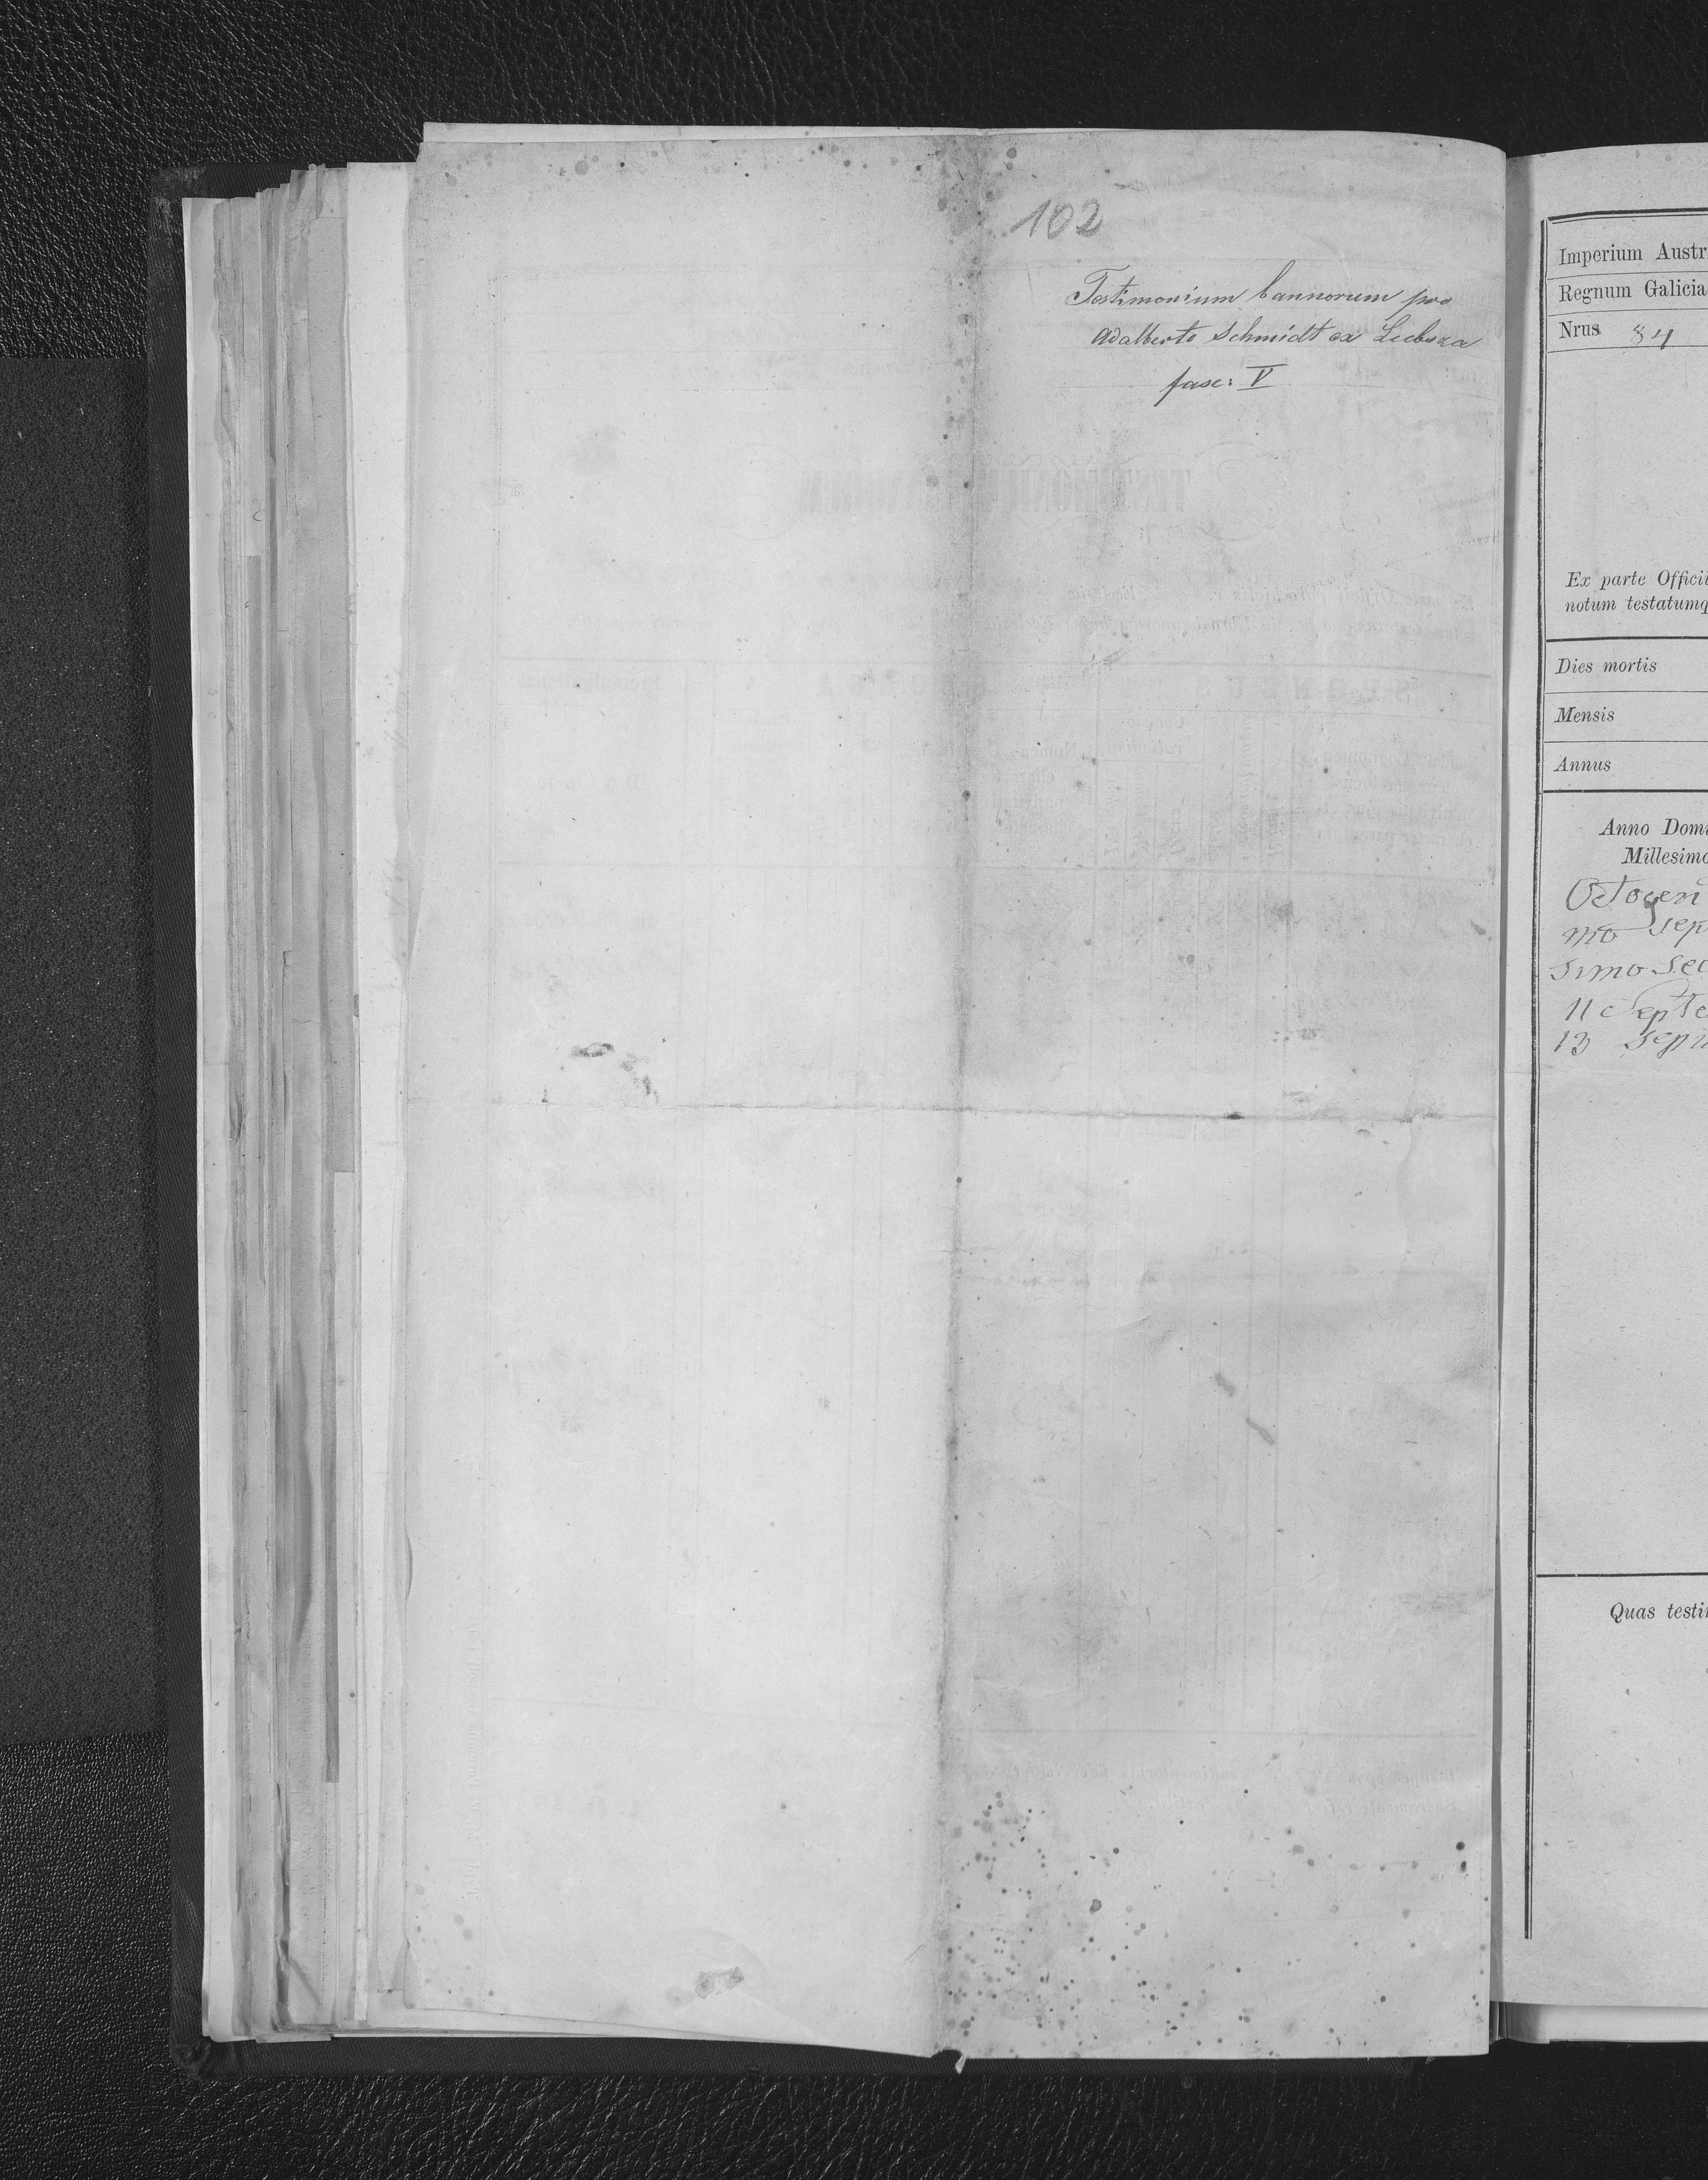 102
Testimonium bannorum pro
Adalberto Schmidt ex
fasc: V
Imperium Austr
Regnum Galicia
Nrus 84
Ex parte Officii
notum testatumq
Dies mortis
Mensis
Annus
Anno Domi
Millesimo
Octogen
mo sep
simo sec
11 Septe
13
Quas testi